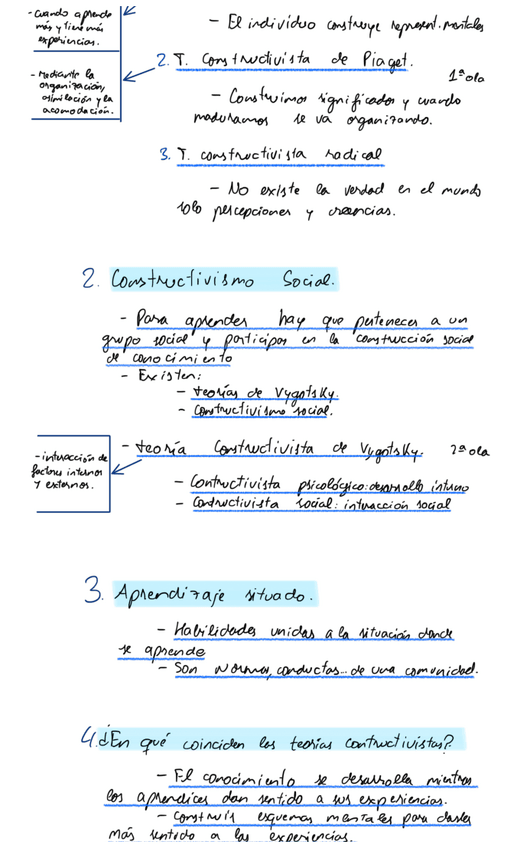 - Cuando aprende
más y tiene más
experiencias.
- El individuo construye represent. mentales
2. T. Constructivista de Piaget.
1ª ola
- Mediante la
organización,
asimilación y la
acomodación.
- Construimos significados y cuando
maduramos se va organizando.
3. T. constructivista radical
- No existe la verdad en el mundo
solo percepciones y creencias.
2. Constructivismo Social.
- Para aprender hay que pertenecer a un
grupo social y participar en la construcción social
de conocimiento
- Existen:
- teorías de Vygotsky.
- Constructivismo social.
- teoría Constructivista de Vygotsky. 2ª ola
- interacción de
factores internos
y externos.
- Contructivista psicológico: desarrollo interno
- Contructivista social: interacción social
3. Aprendizaje situado.
- Habilidades unidas a la situación donde
se aprende
- Son normas, conductas... de una comunidad.
4. ¿En qué coinciden las teorías contructivistas?
- El conocimiento se desarrolla mientras
los aprendices dan sentido a sus experiencias.
- Construir esquemas mentales para darles
más sentido a las experiencias.